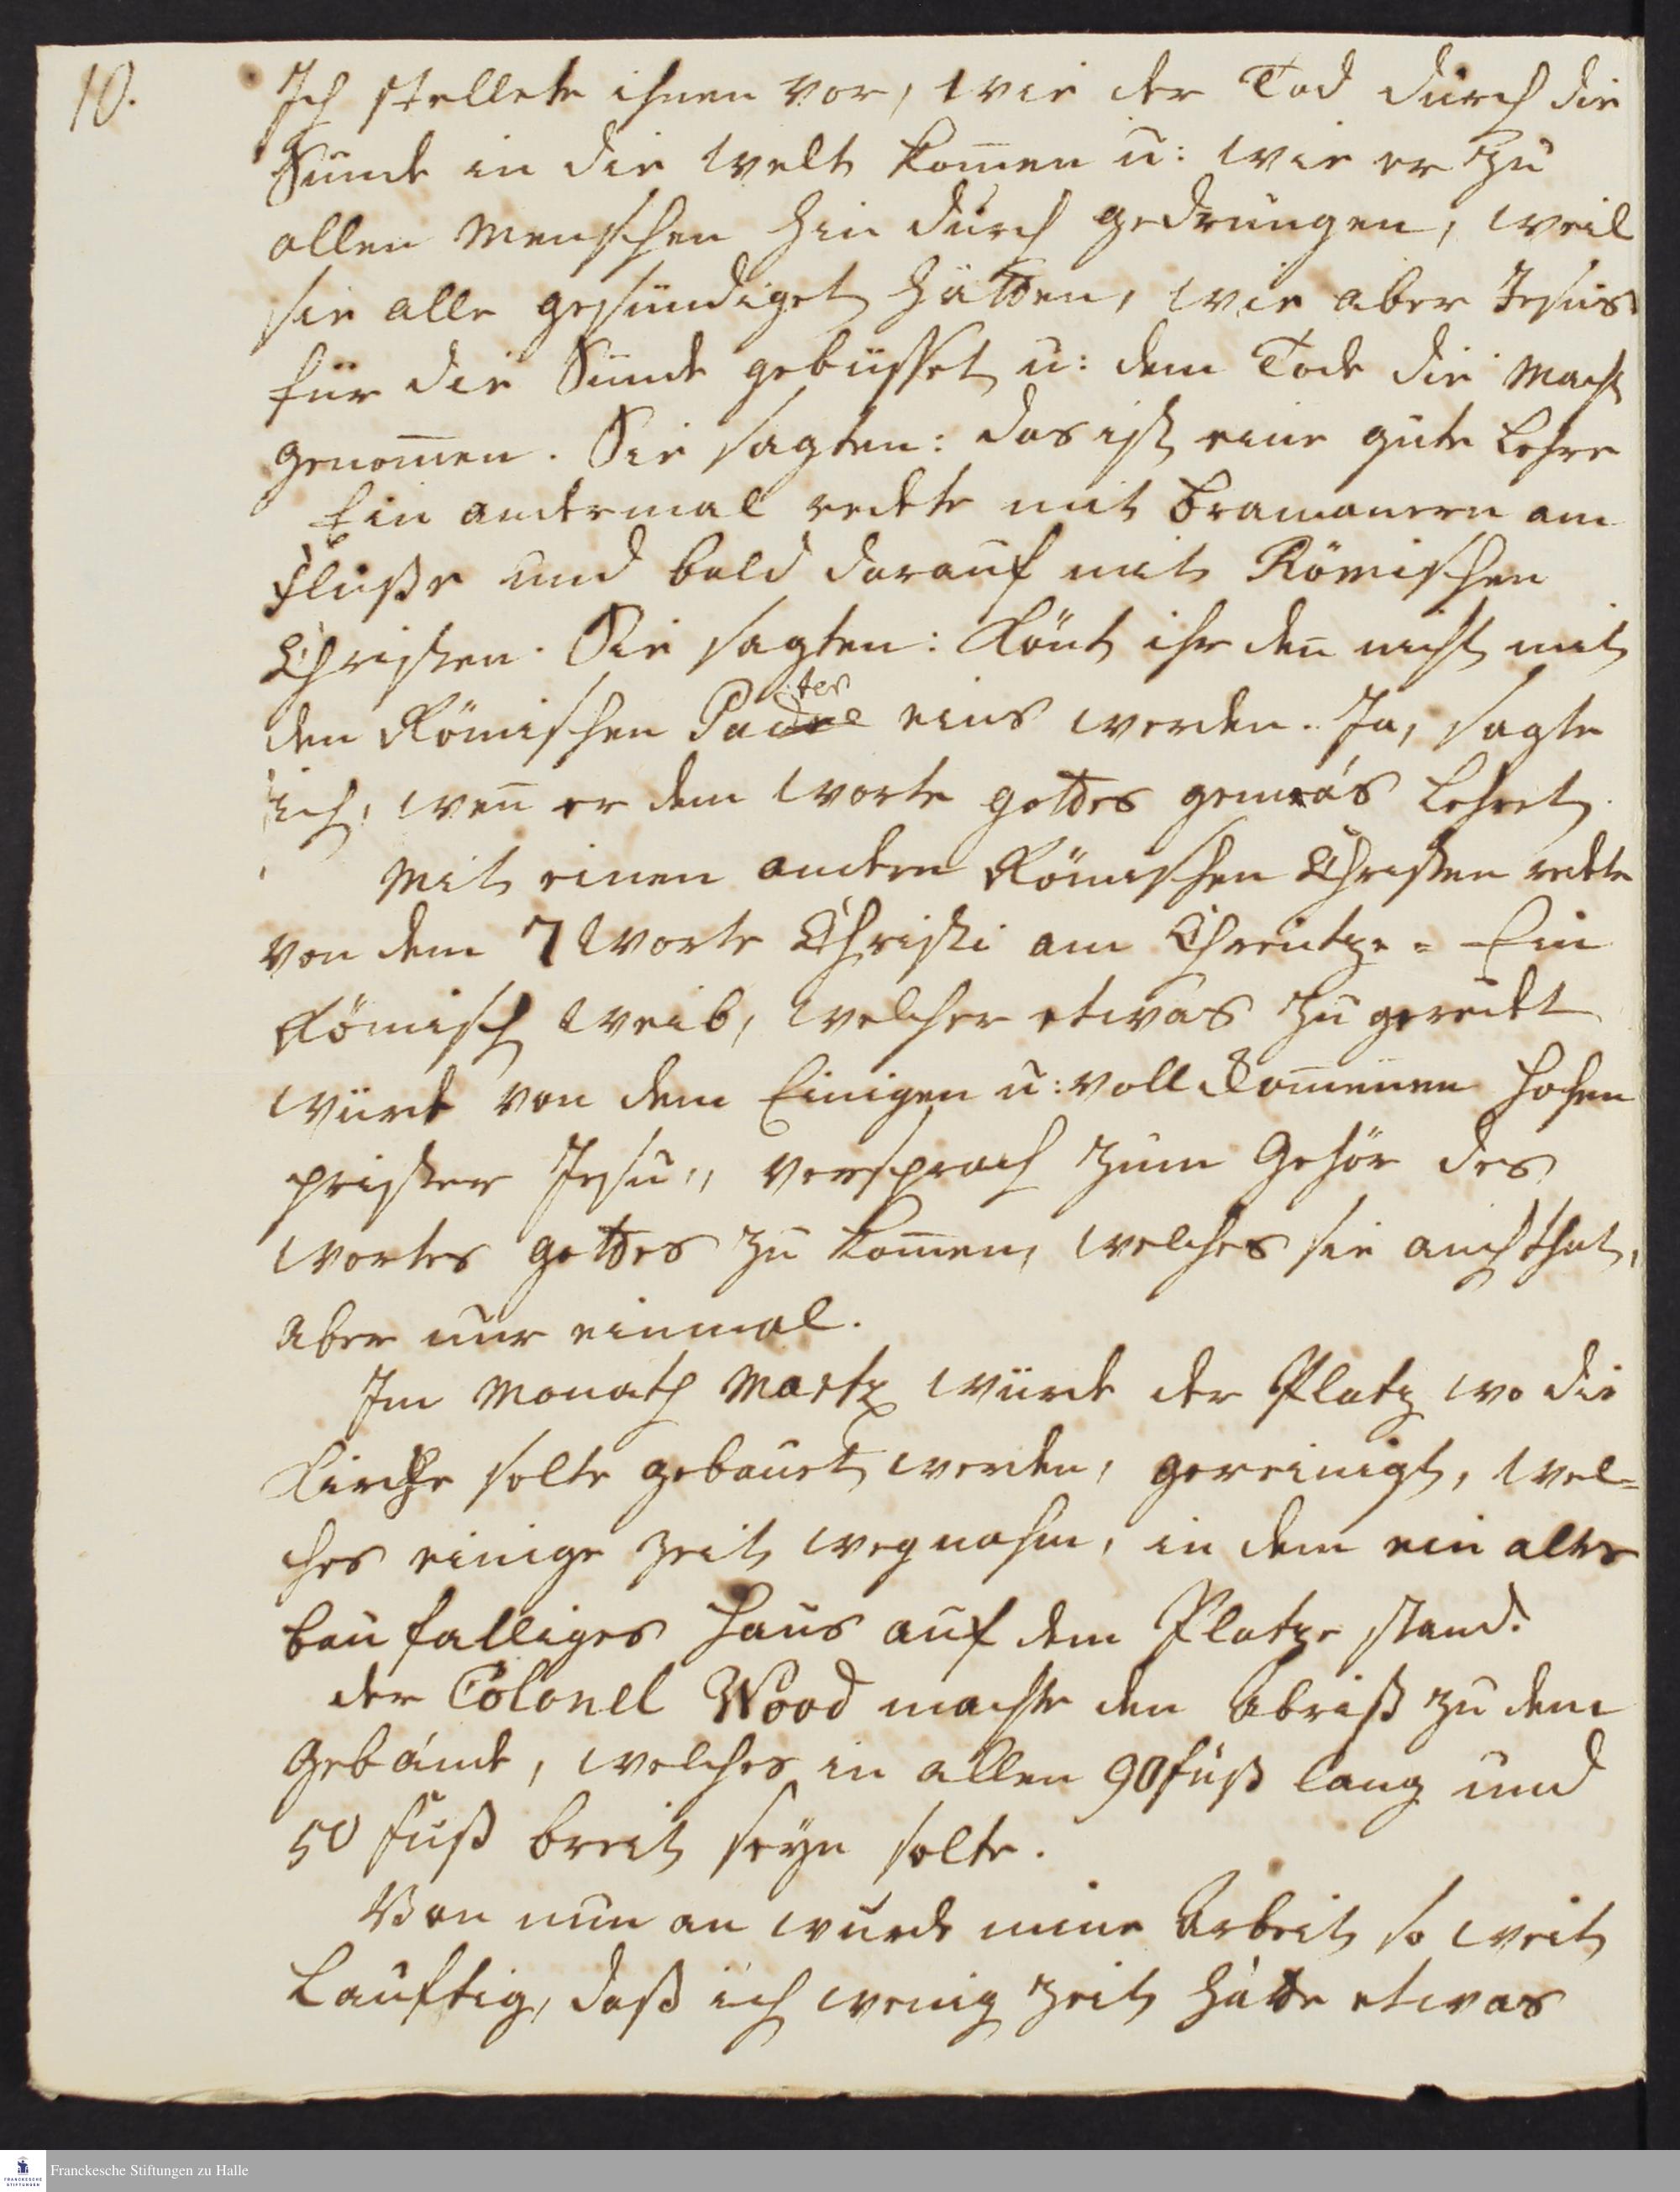 10.
Ich stellete ihnen vor, wie der Tod durch die
Sünde in die Welt kom̄en u: wie er zu
allen Menschen hin durch gedrungen, weil
sie alle gesündiget hätten, wie aber Jesus
für die Sünde gebüsset u: dem Tode die Macht
genom̄en. Sie sagten: das ist eine gute Lehre
Ein andermal redete mit Bramanern am
Fluße und bald darauf mit Römischen
Christen. Sie sagten: Könt ihr den̄ nicht mit
den Römischen Pater eins werden. Ja, sagte
ich, wen̄ er dem Worte gottes gemäs lehret.
Mit einen andern Römischen Christen redete
von dem 7 Worte Christi am Chreutze = Ein
Römisch Weib, welcher etwas zu geredt
würde von dem Einigen u: vollkom̄enen Hohen
prister Jesu,, versprach zum Gehör des
Wortes gottes zu kom̄en, welches sie auch that,
aber nur einmal.
Im Monath Martz würde der Platz wo die
Kirche solte gebauet werden, gereinigt, wel=
ches einige Zeit wegnahm, in dem ein altes
baufalliges Haus auf dem Platze stand.
der Colonel Wood machte den Abriß zu dem
Gebäude, welches in allen 90 fuß lang und
50 fuß breit seyn solte.
Von nun an wurde mine Arbeit so weit
lauftig, daß ich wenig Zeit hätte etwas
Franckesche Stiftungen zu Halle
FRANCKESCHE
STIFTUNGEN